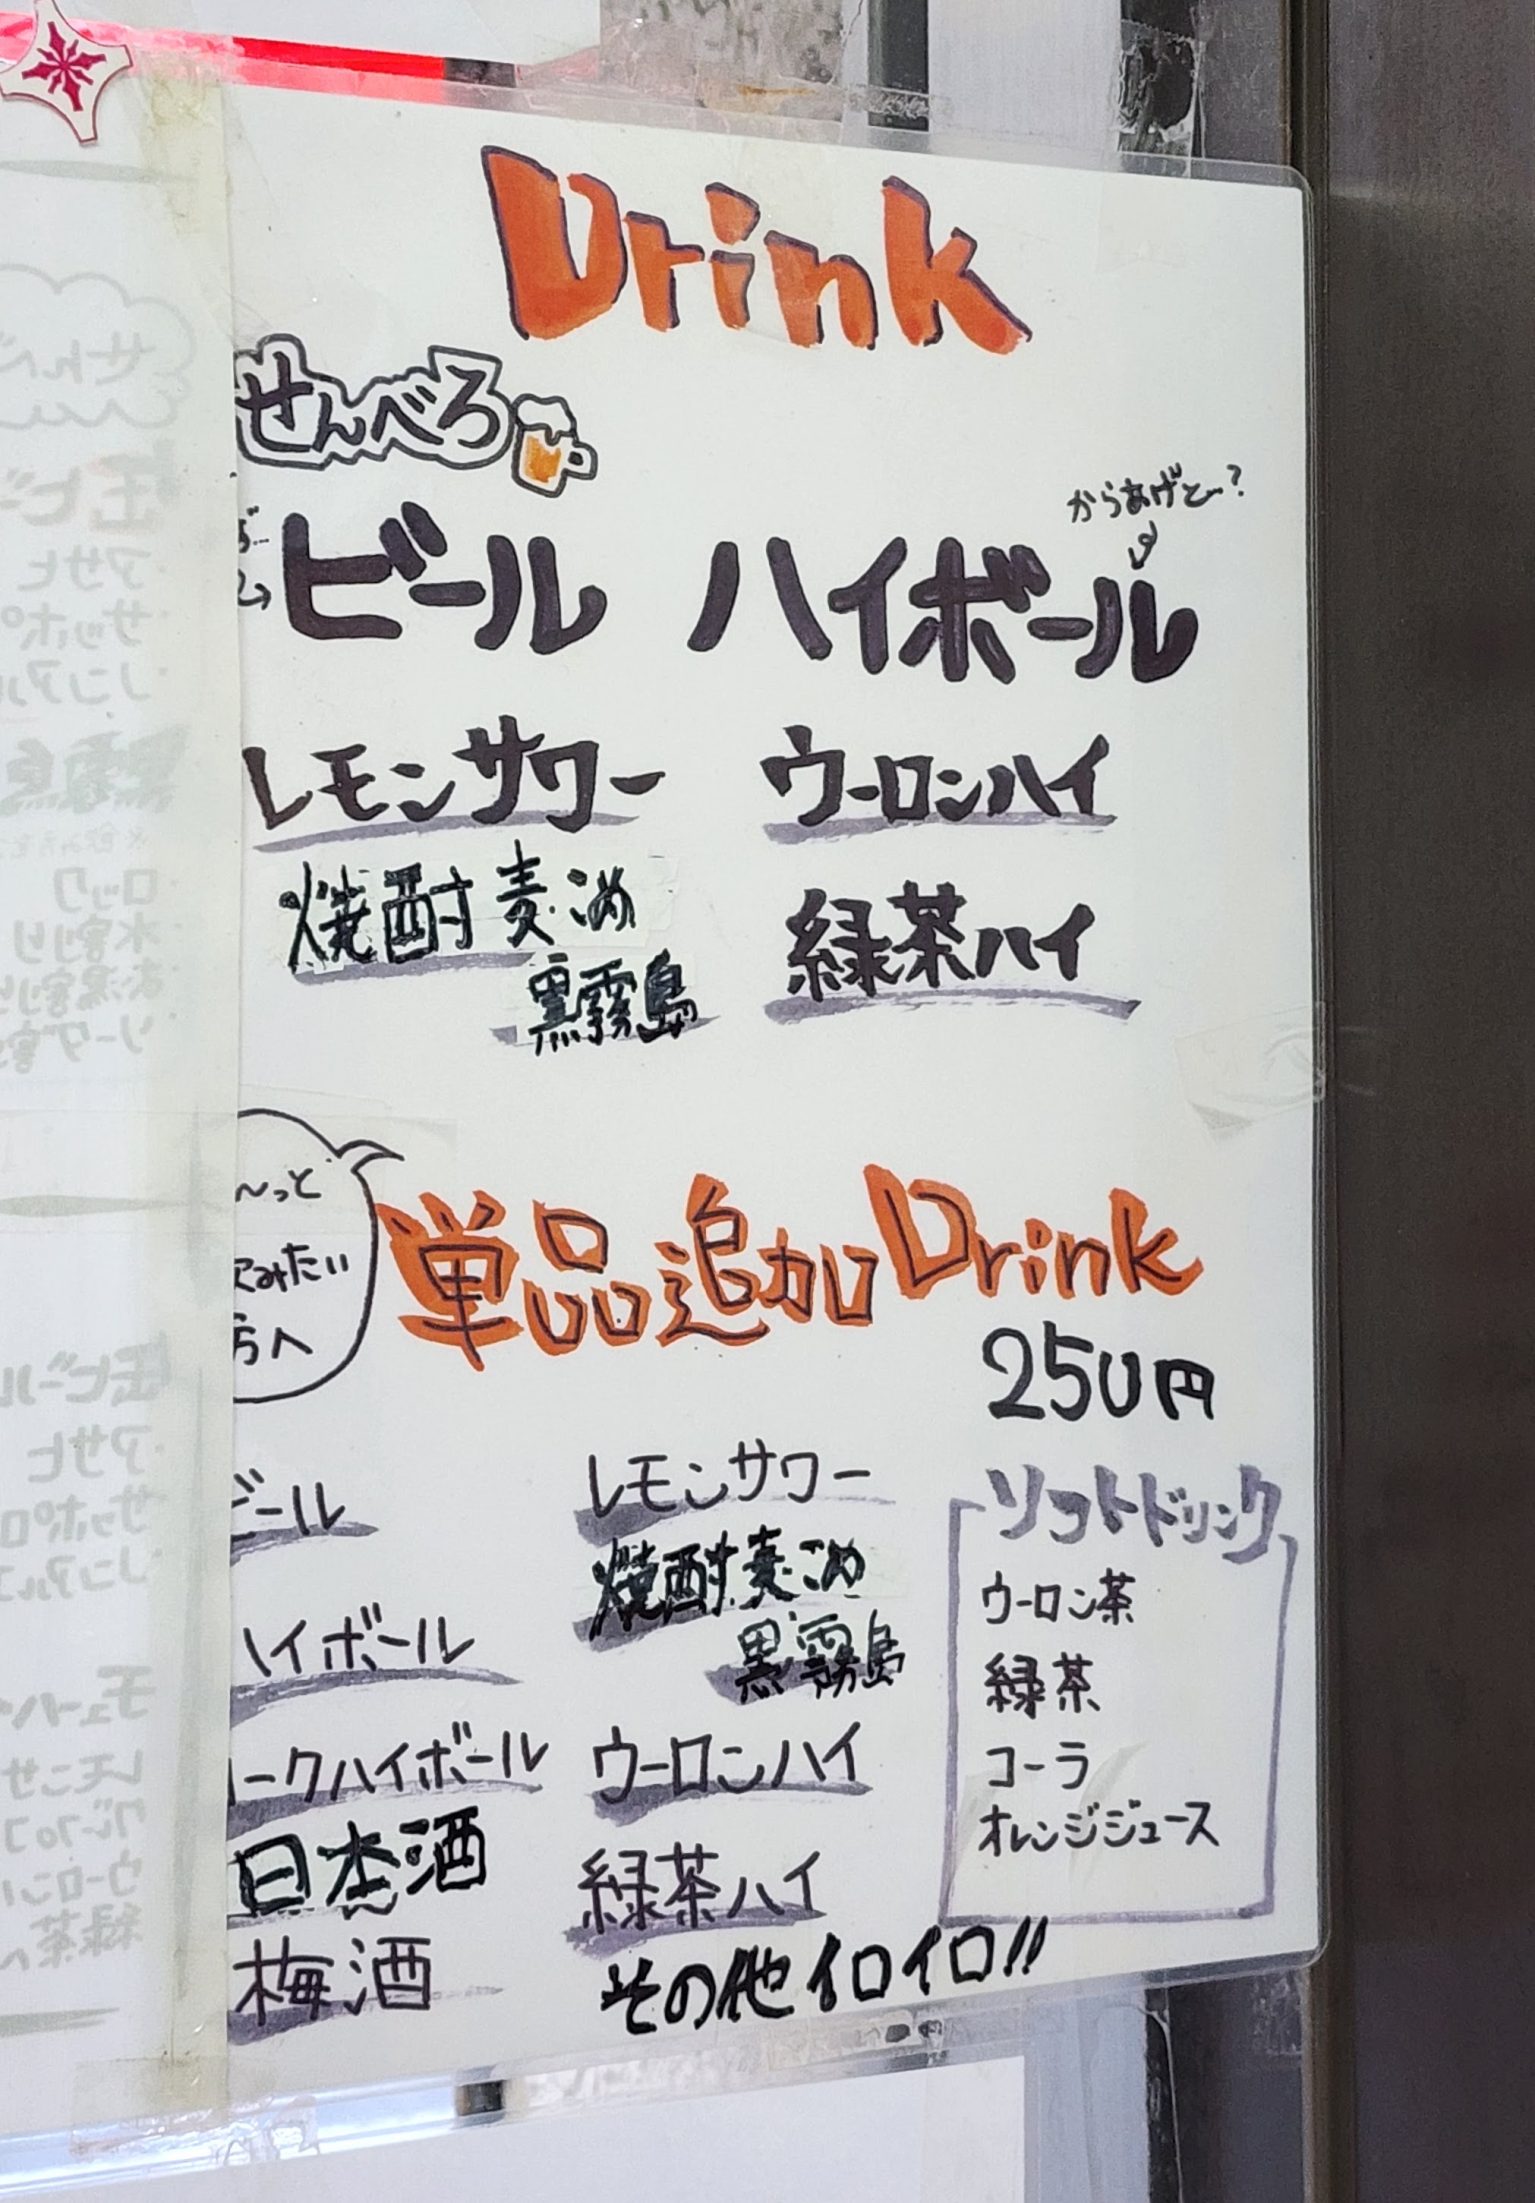 Drink
せんべろ
からあげとー?
ビール ハイボール
レモンサワー ウーロンハイ
焼酎 麦・こめ
緑茶ハイ
黒霧島
〜っと
飲みたい
方へ
単品追加Drink
250円
ビール
レモンサワー
ソフトドリンク
焼酎 麦・こめ
ウーロン茶
ハイボール
黒霧島
緑茶
ークハイボール
ウーロンハイ
コーラ
オレンジジュース
日本酒
緑茶ハイ
梅酒
その他イロイロ!!